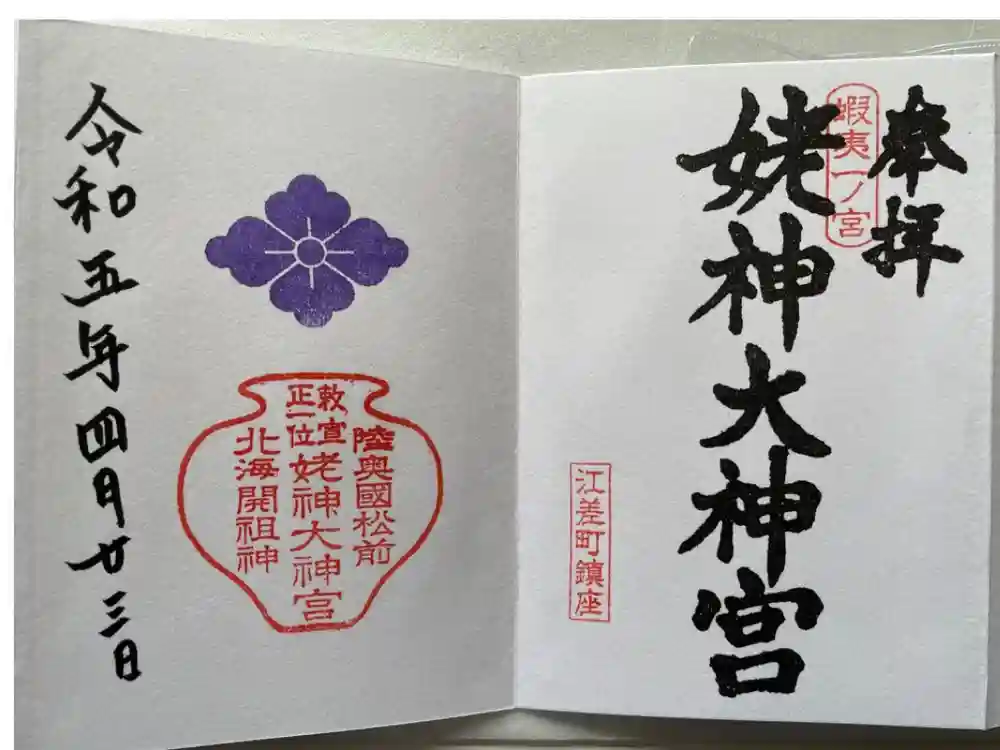 奉拝
蝦夷一ノ宮
姥神大神宮
江差町鎮座
陸奥國松前
敕宣
正一位
姥神大神宮
北海開祖神
令和五年四月廿三日